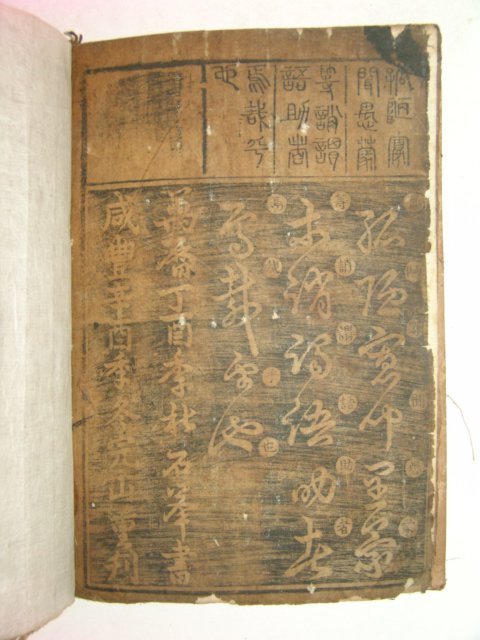 孤陋寡
聞愚蒙
等誚謂
語助者
焉哉乎
也
孤陋寡聞愚蒙
等誚謂語助者
焉哉乎也
萬曆丁酉季秋石峯書
咸豐辛酉季冬完山重刊